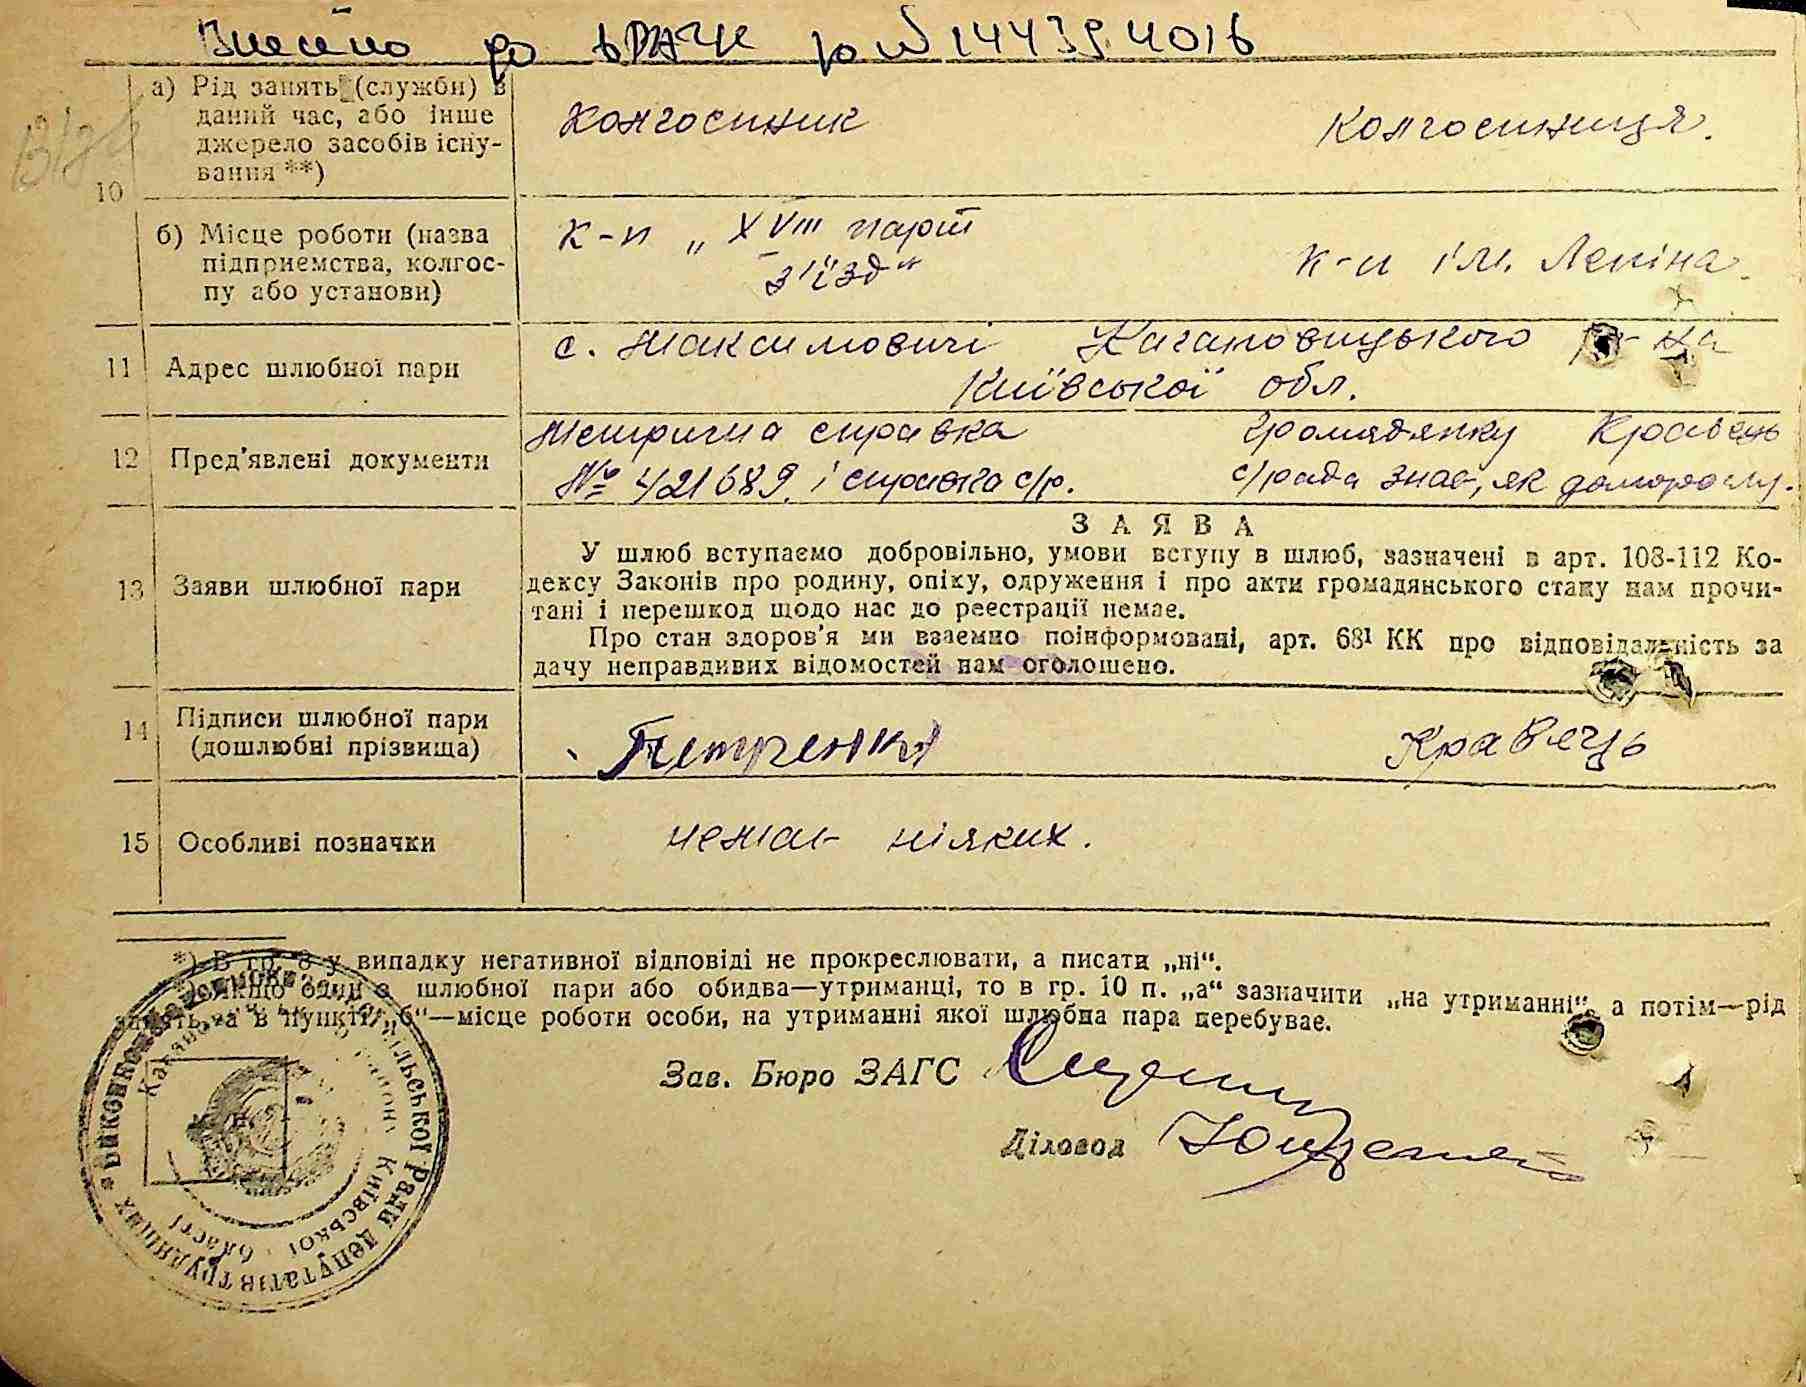 Внесено до ДРАЦС за № 14439 4016
10
а) Рід занять (служби) в
даний час, або інше
джерело засобів існу-
вання **)
Колгоспник
Колгоспниця.
б) Місце роботи (назва
підприємства, колгос-
пу або установи)
к-п „XVIII парт
з'їзд“
к-п ім. Леніна.
11
Адрес шлюбної пари
с. Максимовичі Кагановицького р-на
Київської обл.
12
Пред'явлені документи
Метрична справка
№ 421689. і справка с/р.
Громадянку Кравець
с/рада знає, як
13
Заяви шлюбної пари
ЗАЯВА
У шлюб вступаємо добровільно, умови вступу в шлюб, зазначені в арт. 108-112 Ко-
дексу Законів про родину, опіку, одруження і про акти громадянського стану нам прочи-
тані і перешкод щодо нас до реєстрації немає.
Про стан здоров'я ми взаємно поінформовані, арт. 68¹ КК про відповідальність за
дачу неправдивих відомостей нам оголошено.
14
Підписи шлюбної пари
(дошлюбні прізвища)
Петренко
Кравець
15
Особливі позначки
немає ніяких.
*) В гр. 8 у випадку негативної відповіді не прокреслювати, а писати „ні“.
Якщо один з шлюбної пари або обидва—утриманці, то в гр. 10 п. „а“ зазначити „на утриманні“, а потім—рід
занять, а в пункті „б“—місце роботи особи, на утриманні якої шлюбна пара перебуває.
Зав. Бюро ЗАГС
Діловод
Виконком сільської Ради депутатів трудящих
район Київської області